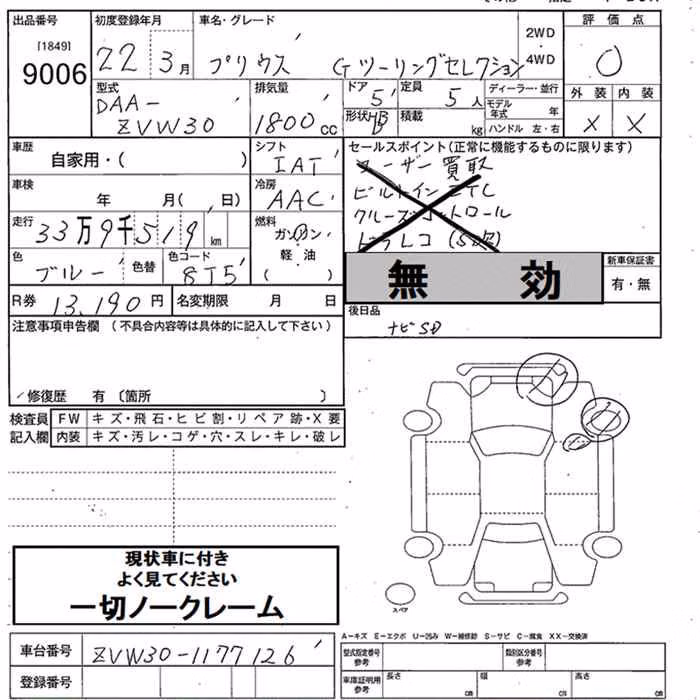 出品番号 初度登録年月 車名・グレード 2WD 評価点
[1849]
9006 22 3月 プリウス Gツーリングセレクション ・4WD 0
型式 排気量 ドア 定員 ディーラー・並行 外装 内装
DAA- 5 5人 モデル年式 年
ZVW30 1800cc 形状 HB 積載 kg ハンドル 左・右 X X
車歴 シフト セールスポイント(正常に機能するものに限ります)
自家用・( ) IAT ユーザー買取
車検 冷房 ビルトインETC
年 月( 日) AAC クルーズコントロール
走行 燃料 ドラレコ
33万9千519km ガソリン
色 色替 色コード 軽油 無効 新車保証書
ブルー 8T5 ( ) 有・無
R券 13,190円 名変期限 月 日 後日品
注意事項申告欄(不具合内容等は具体的に記入して下さい) ナビSD
修復歴 有〔箇所 〕
検査員記入欄 FW キズ・飛石・ヒビ割・リペア跡・X要
内装 キズ・汚レ・コゲ・穴・スレ・キレ・破レ
現状車に付き
よく見てください
一切ノークレーム
スペア
A-キズ E-エクボ U-凹み W-補修跡 S-サビ C-腐食 XX-交換済
車台番号 ZVW30-1177126 型式指定番号参考 類別区分番号参考
登録番号 車庫証明用参考 長さ cm 幅 cm 高さ cm